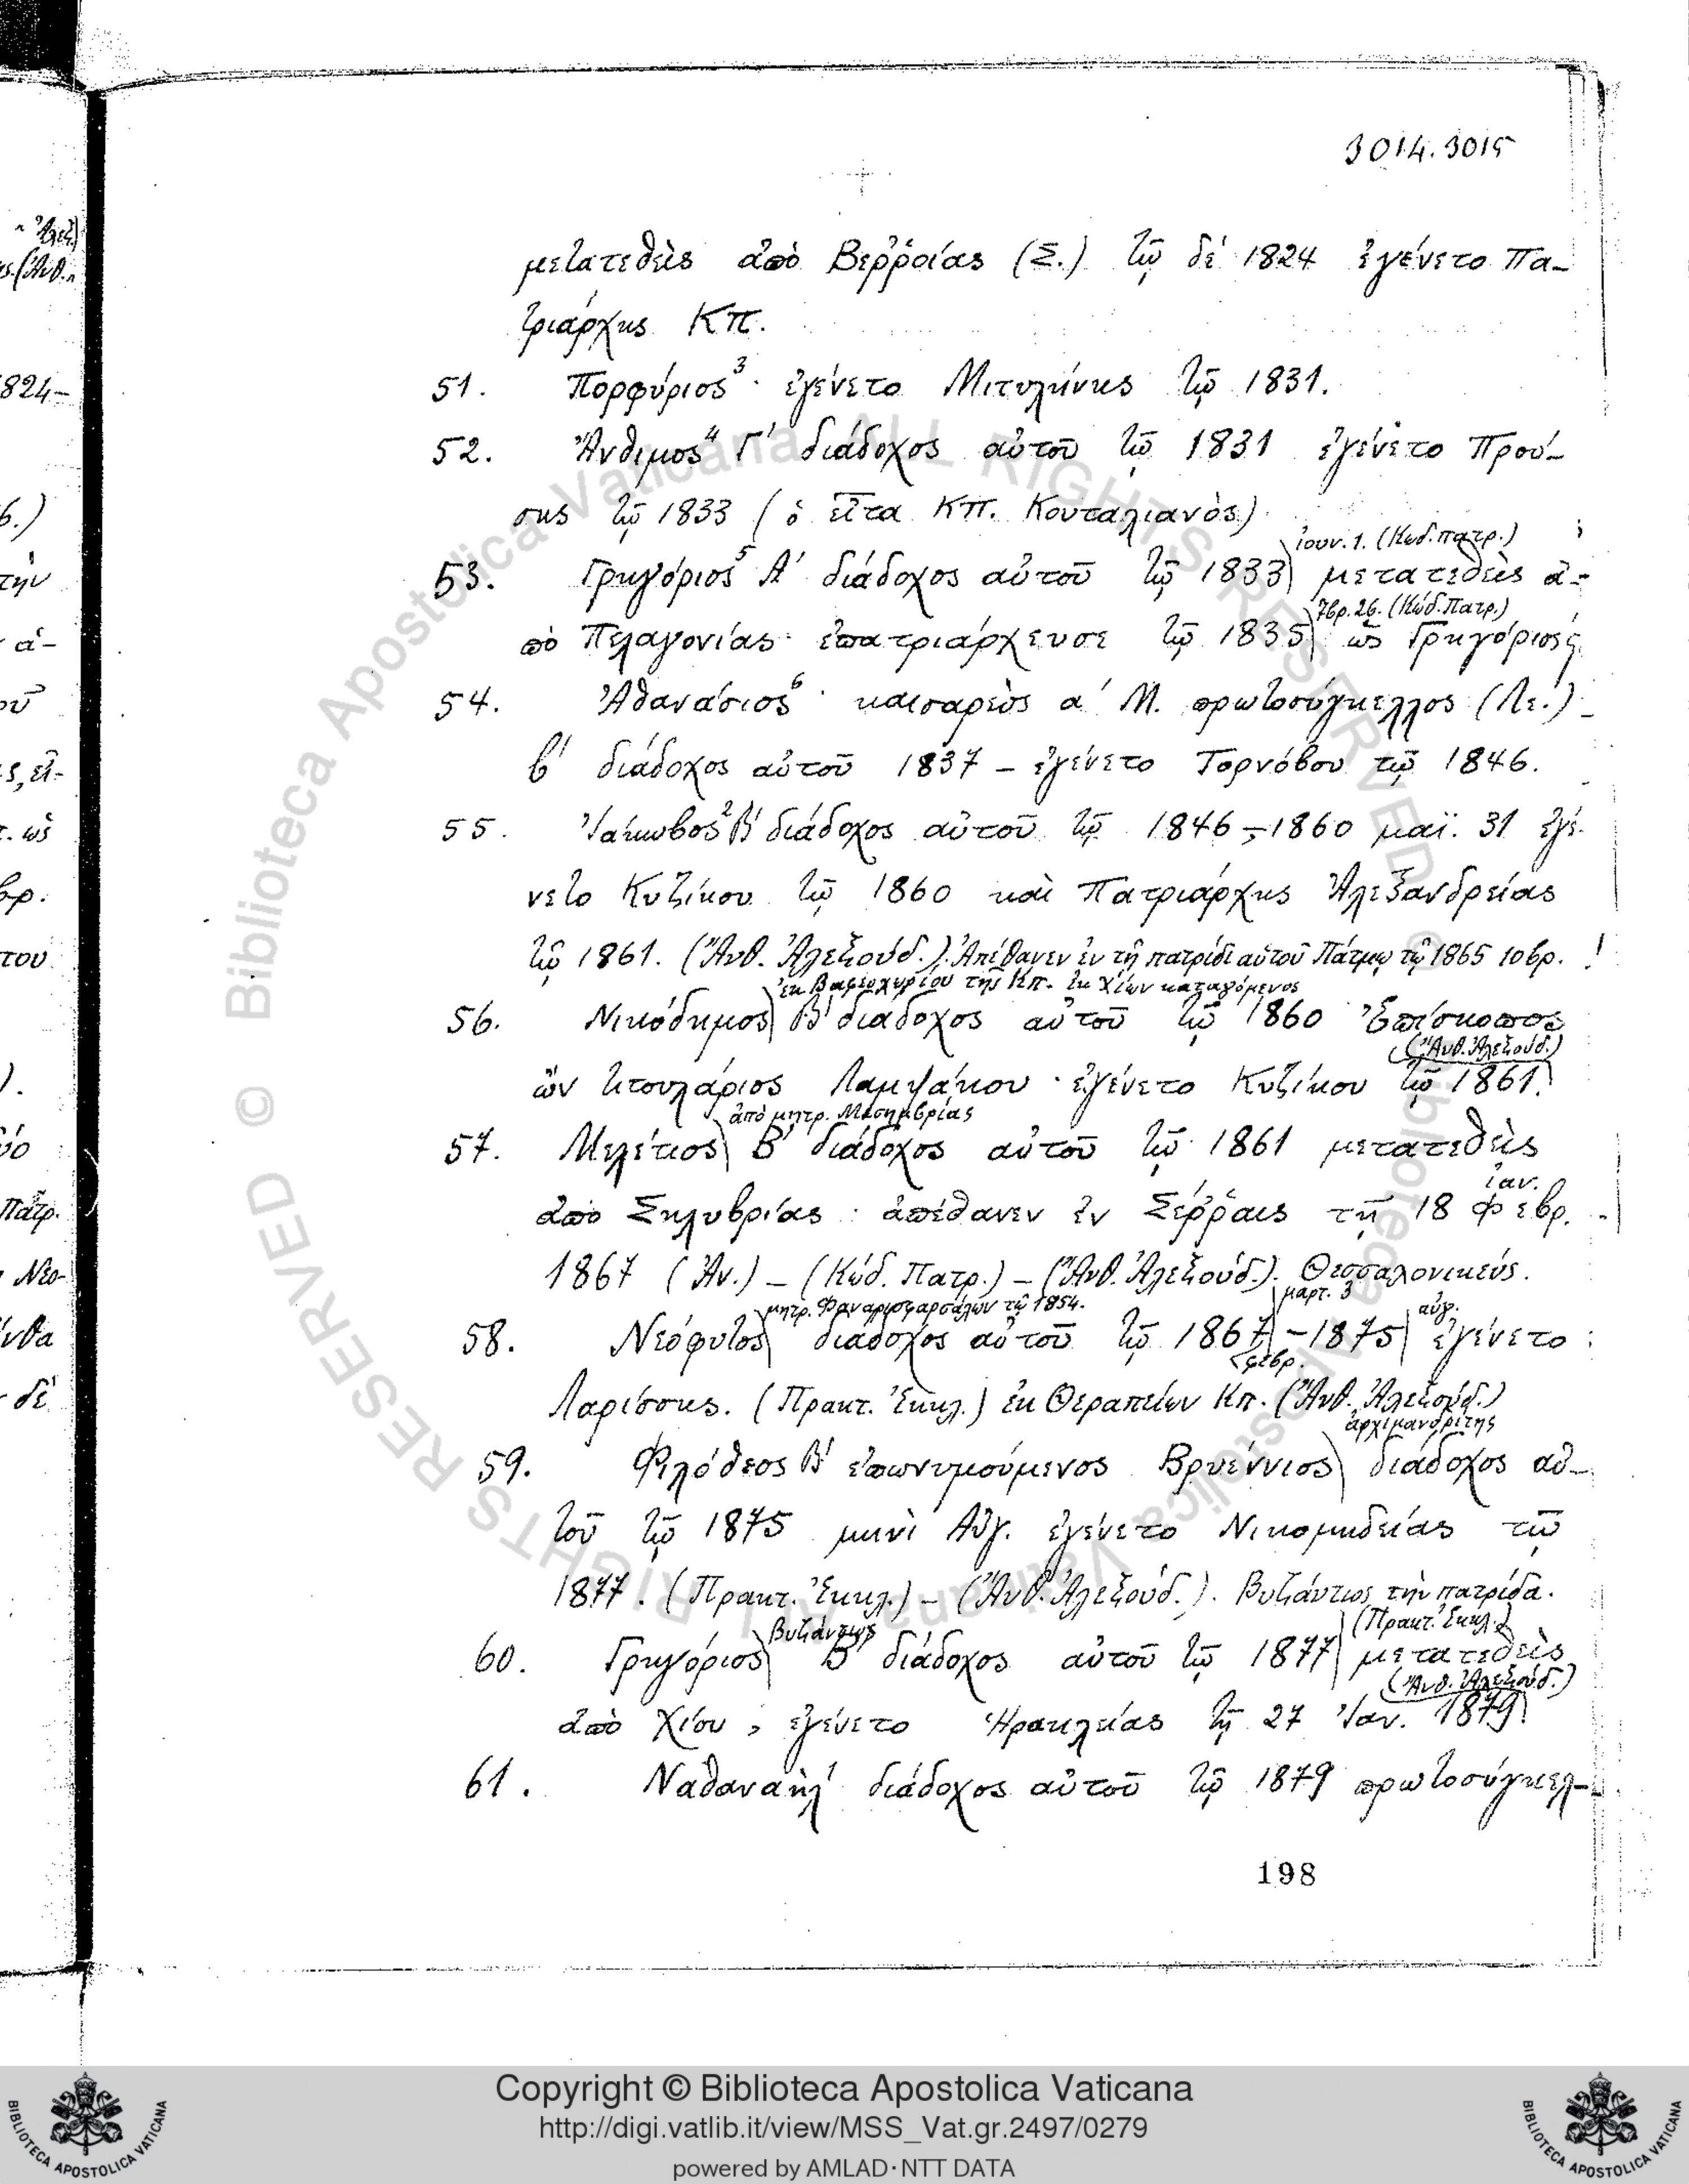 3014.3015
μετατεθεὶς ἀπὸ Βεῤῥοίας (Σ.) τῷ δὲ 1824 ἐγένετο Πα-
τριάρχης ΚΠ.
51. Πορφύριος³· ἐγένετο Μιτυλήνης τῷ 1831.
52. Ἄνθιμος⁴ Γ' διάδοχος αὐτοῦ τῷ 1831 ἐγένετο Πρού-
σης τῷ 1833 (ὁ εἶτα ΚΠ. Κουταλιανὸς)
ἰουν. 1. (Κωδ. πατρ.)
53. Γρηγόριος⁵ Α' διάδοχος αὐτοῦ τῷ 1833 μετατεθεὶς ἀ-
7βρ. 26. (Κώδ. Πατρ.)
πὸ Πελαγονίας· ἐπατριάρχευσε τῷ 1835 ὡς Γρηγόριος ς
54. Ἀθανάσιος⁶· καισαρεὺς α' Μ. πρωτοσύγκελλος (Λε.)
β' διάδοχος αὐτοῦ 1837 – ἐγένετο Τορνόβου τῷ 1846.
55. Ἰάκωβος² Β' διάδοχος αὐτοῦ τῷ 1846 – 1860 μαΐ. 31 ἐγέ-
νετο Κυζίκου τῷ 1860 καὶ Πατριάρχης Ἀλεξανδρείας
τῷ 1861. (Ἄνθ. Ἀλεξούδ.). Ἀπέθανεν ἐν τῇ πατρίδι αὐτοῦ Πάτμῳ τῷ 1865 10βρ.
ἐκ Βαφεοχωρίου τῆς Κπ. ἐκ Χίων καταγόμενος
56. Νικόδημος Β' διάδοχος αὐτοῦ τῷ 1860 Ἐπίσκοπος
(Ἄνθ. Ἀλεξούδ.)
ὢν τιτουλάριος Λαμψάκου· ἐγένετο Κυζίκου τῷ 1861.
ἀπὸ μητρ. Μεσημβρίας
57. Μελέτιος Β' διάδοχος αὐτοῦ τῷ 1861 μετατεθεὶς
ἰαν.
ἀπὸ Σηλυβρίας· ἀπέθανεν ἐν Σέῤῥαις τῇ 18 Φεβρ.
1867 (Ἀν.) – (Κώδ. Πατρ.) – (Ἄνθ. Ἀλεξούδ.). Θεσσαλονικεύς.
μητρ. Φαναριοφαρσάλων τῷ 1854. μαρτ. 3 αὐγ.
58. Νεόφυτος διάδοχος αὐτοῦ τῷ 1867 – 1875 ἐγένετο
φεβρ.
Λαρίσσης. (Πρακτ. Ἐκκλ.) ἐκ Θεραπείων Κπ. (Ἄνθ. Ἀλεξούδ.)
ἀρχιμανδρίτης
59. Φιλόθεος Β' ἐπωνυμούμενος Βρυέννιος διάδοχος αὐ-
τοῦ τῷ 1875 μηνὶ Αὐγ. ἐγένετο Νικομηδείας τῷ
1877. (Πρακτ. Ἐκκλ.) – (Ἄνθ. Ἀλεξούδ.). Βυζάντιος τὴν πατρίδα.
Βυζάντιος (Πρακτ. Ἐκκλ.)
60. Γρηγόριος Β' διάδοχος αὐτοῦ τῷ 1877 μετατεθεὶς
(Ἄνθ. Ἀλεξούδ.)
ἀπὸ Χίου, ἐγένετο Ἡρακλείας τῇ 27 Ἰαν. 1879.
61. Ναθαναὴλ¹ διάδοχος αὐτοῦ τῷ 1879 πρωτοσύγκελ-
198
© Biblioteca Apostolica Vaticana ALL RIGHTS RESERVED
Copyright © Biblioteca Apostolica Vaticana
http://digi.vatlib.it/view/MSS_Vat.gr.2497/0279
powered by AMLAD·NTT DATA
BIBLIOTECA APOSTOLICA VATICANA
BIBLIOTECA APOSTOLICA VATICANA